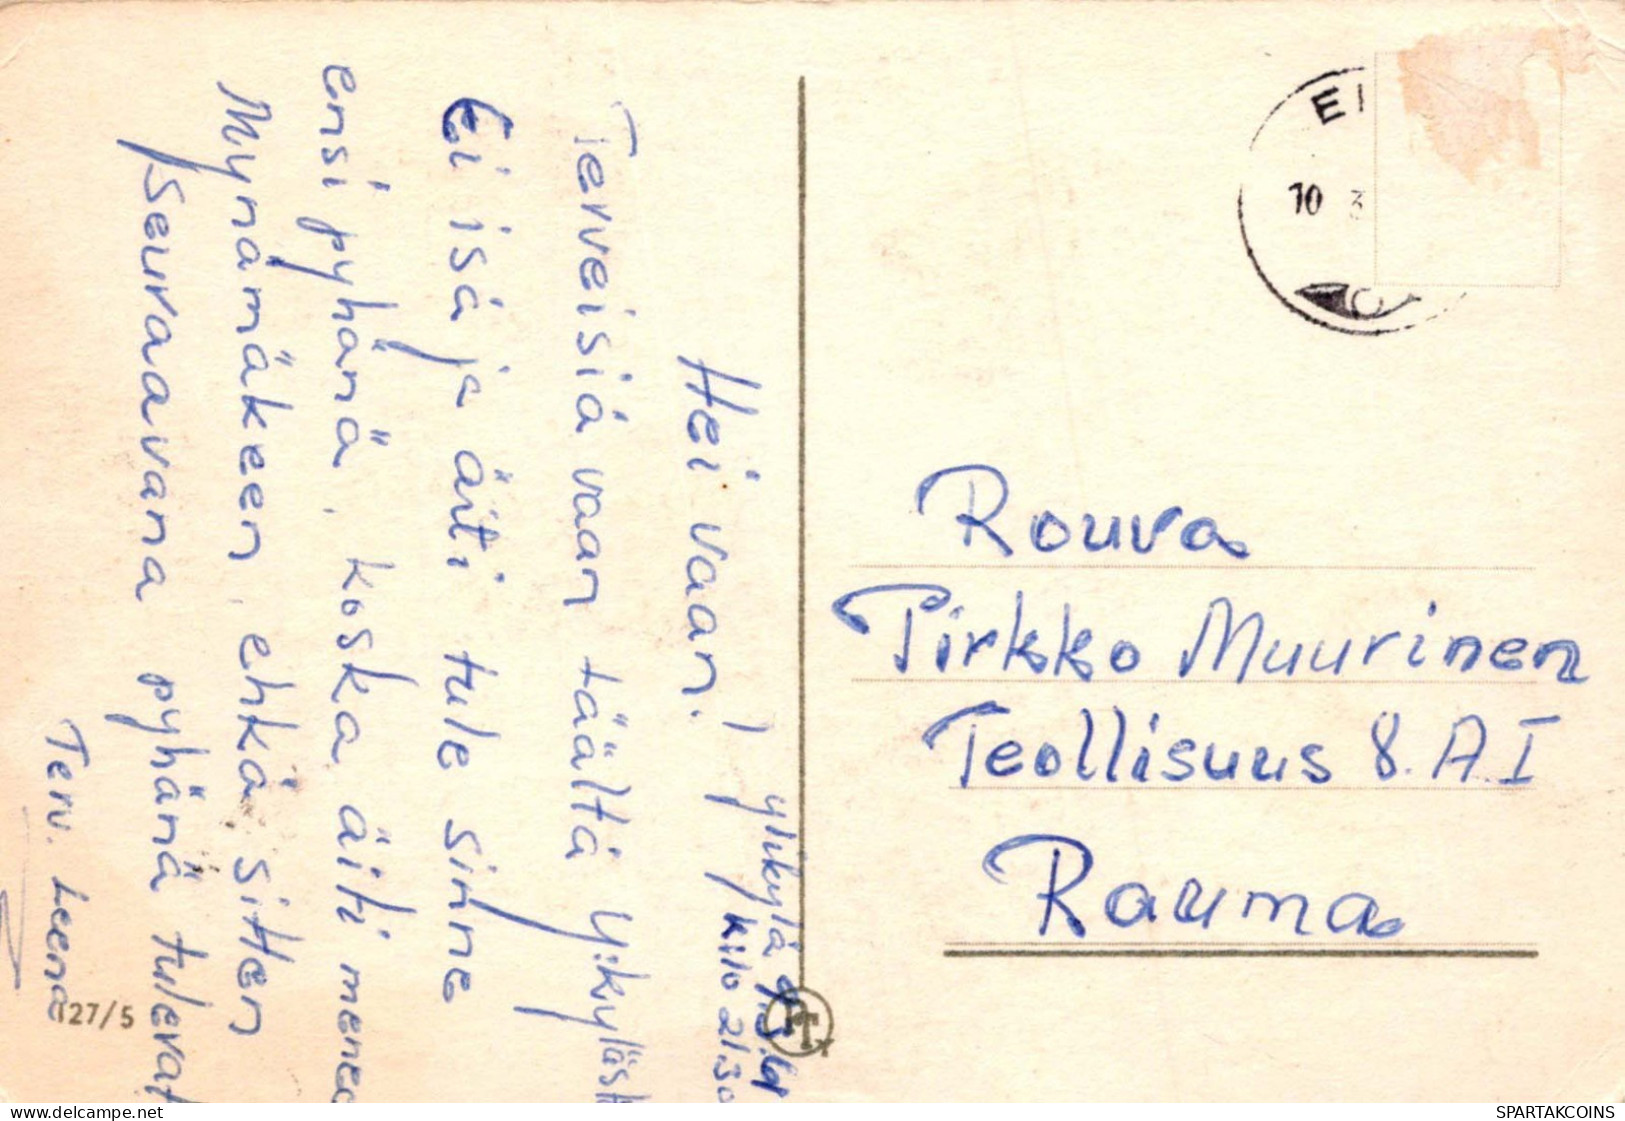 Ylikylä 9.3.61
Klo 21.30
Hei vaan!
Terveisiä vaan täältä Ylikyläst
Ei isä ja äiti tule sinne
ensi pyhänä, koska äiti menee
Mynämäkeen, ehkä sitten
seuraavana pyhänä tulevat
Terv. Leena
127/5
EI
10 3
Rouva
Pirkko Muurinen
Teollisuus 8. A I
Rauma
www.delcampe.net
the.seller
SPARTAKCOINS